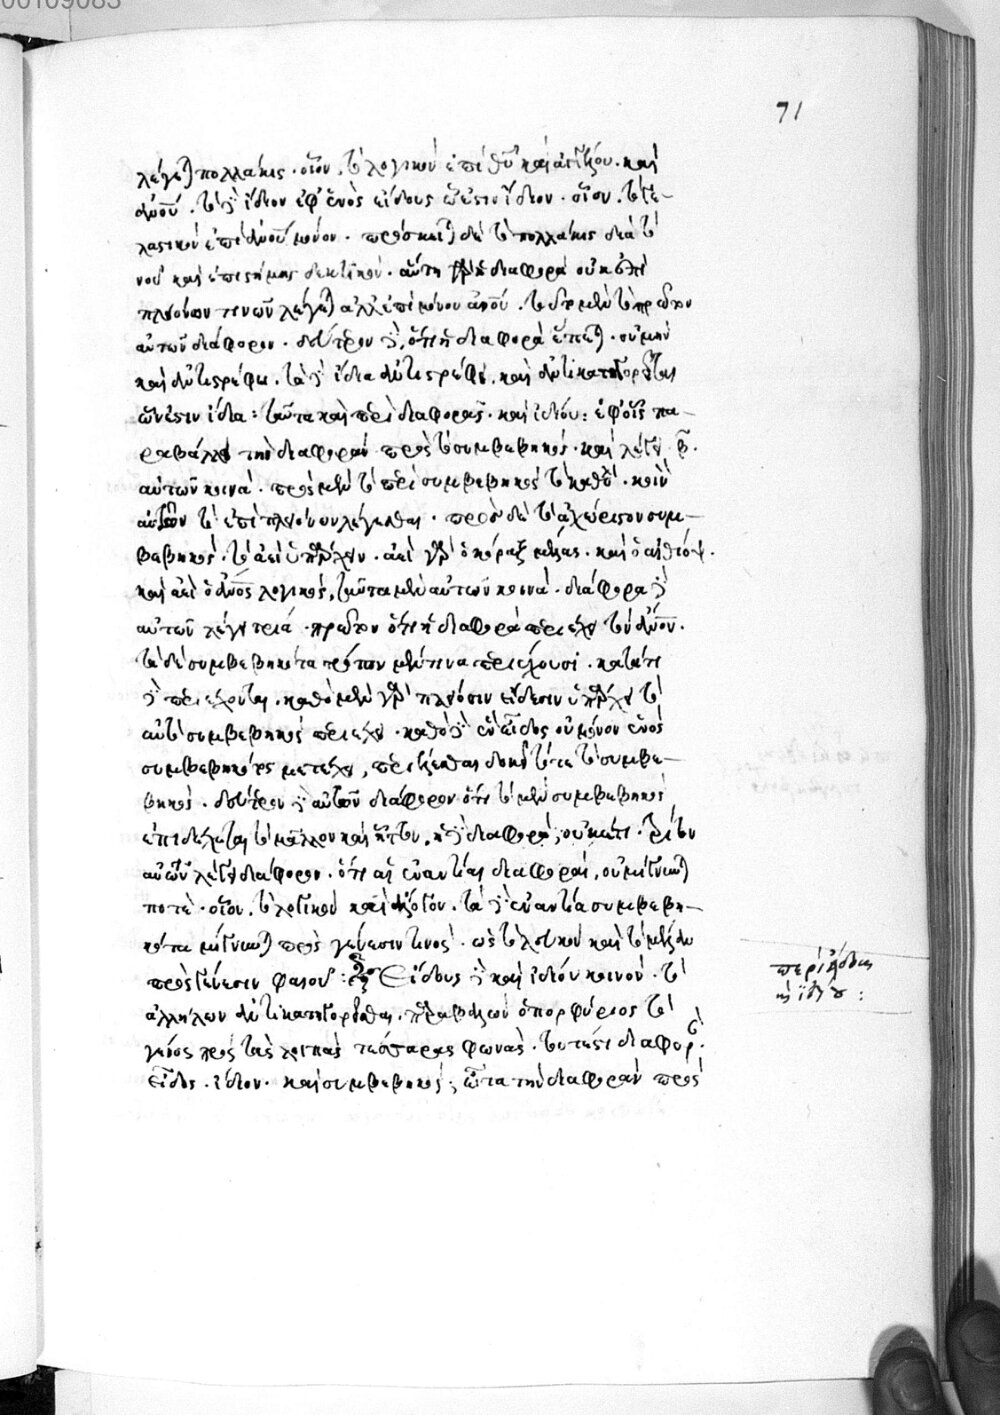 00109083
71
λέγεται πολλάκις · οἷον τὸ λογικὸν ἐπὶ θεοῦ καὶ ἀγγέλου · καὶ
ἀνοῦ · τὸ δὲ ἴδιον ἐφ' ἑνὸς εἴδους οὗ ἐστιν ἴδιον · οἷον τὸ γε-
λαστικὸν ἐπὶ ἀνοῦ μόνον · πρόσκειται δὲ τὸ πολλάκις διὰ τὸ
νοῦ καὶ ἐπιστήμης δεκτικόν · αὕτη γὰρ ἡ διαφορὰ οὐκ ἐπὶ
πλειόνων τινῶν λέγεται ἀλλ' ἐπὶ μόνου ἀνοῦ · τοῦτο μὲν τὸ πρῶτον
αὐτῶν διάφορον · δεύτερον δὲ, ὅτι ἡ διαφορὰ ἕπεται · οὐ μὴν
καὶ ἀντιστρέφει · τὰ δὲ ἴδια ἀντιστρέφει, καὶ ἀντικατηγορεῖται
ὧν ἐστιν ἴδια : ταῦτα καὶ περὶ διαφορᾶς · καὶ ἰδίου : ἐφ' οἷς πα-
ραβάλλει τὴν διαφορὰν πρὸς τὸ συμβεβηκός · καὶ λέγει β
αὐτῶν κοινά · πρὸς μὲν τὸ περὶ συμβεβηκὸς τὸ καθό · κοινὸν
αὐτῶν τὸ ἐπὶ πλειόνων λέγεσθαι · πρὸς δὲ τὸ ἀχώριστον συμ-
βεβηκός · τὸ ἀεὶ ὑπάρχειν · ἀεὶ γὰρ ὁ κόραξ μέλας · καὶ ὁ αἰθίοψ ·
καὶ ἀεὶ ὁ ἄνος λογικός, ταῦτα μὲν αὐτῶν κοινά · διάφορα δὲ
αὐτῶν λέγει τρία · πρῶτον ὅτι ἡ διαφορὰ περιέχει τὸν ἄνον ·
τὰ δὲ συμβεβηκότα τρόπον μέν τινα περιέχουσι · κατά τι
δὲ περιέχονται · καθὸ μὲν γὰρ πλείοσιν εἴδεσιν ὑπάρχει τὸ
αὐτὸ συμβεβηκὸς περιέχει · καθὸ δὲ ἓν εἶδος οὐ μόνον ἑνὸς
συμβεβηκότος μετέχει, περιέχεσθαι δοκεῖ τότε τὸ συμβε-
βηκός · δεύτερον δὲ αὐτῶν διάφορον ὅτι τὸ μὲν συμβεβηκὸς
ἐπιδέχεται τὸ μᾶλλον καὶ ἧττον, ἡ δὲ διαφορὰ, οὐκέτι · τρίτον
αὐτῶν λέγει διάφορον · ὅτι αἱ ἐναντίαι διαφοραὶ, οὐ μίγνυνται
ποτέ · οἷον τὸ λογικὸν καὶ ἄλογον · τὰ δὲ ἐναντία συμβεβη-
κότα μίγνυνται πρὸς γένεσίν τινος · ὡς τὸ λευκὸν καὶ τὸ μέλαν
πρὸς γένεσιν φαιοῦ : Εἴδους δὲ καὶ ἰδίου κοινὸν · τὸ
ἀλλήλων ἀντικατηγορεῖσθαι · παραβαλὼν ὁ πορφύριος τὸ
γένος πρὸς τὰς λοιπὰς τέσσαρας φωνάς · τουτέστι διαφορ ·
εἶδος · ἴδιον · καὶ συμβεβηκός ; εἶτα τὴν διαφορὰν πρὸς
περὶ εἴδους
κὶ ἰδίου :